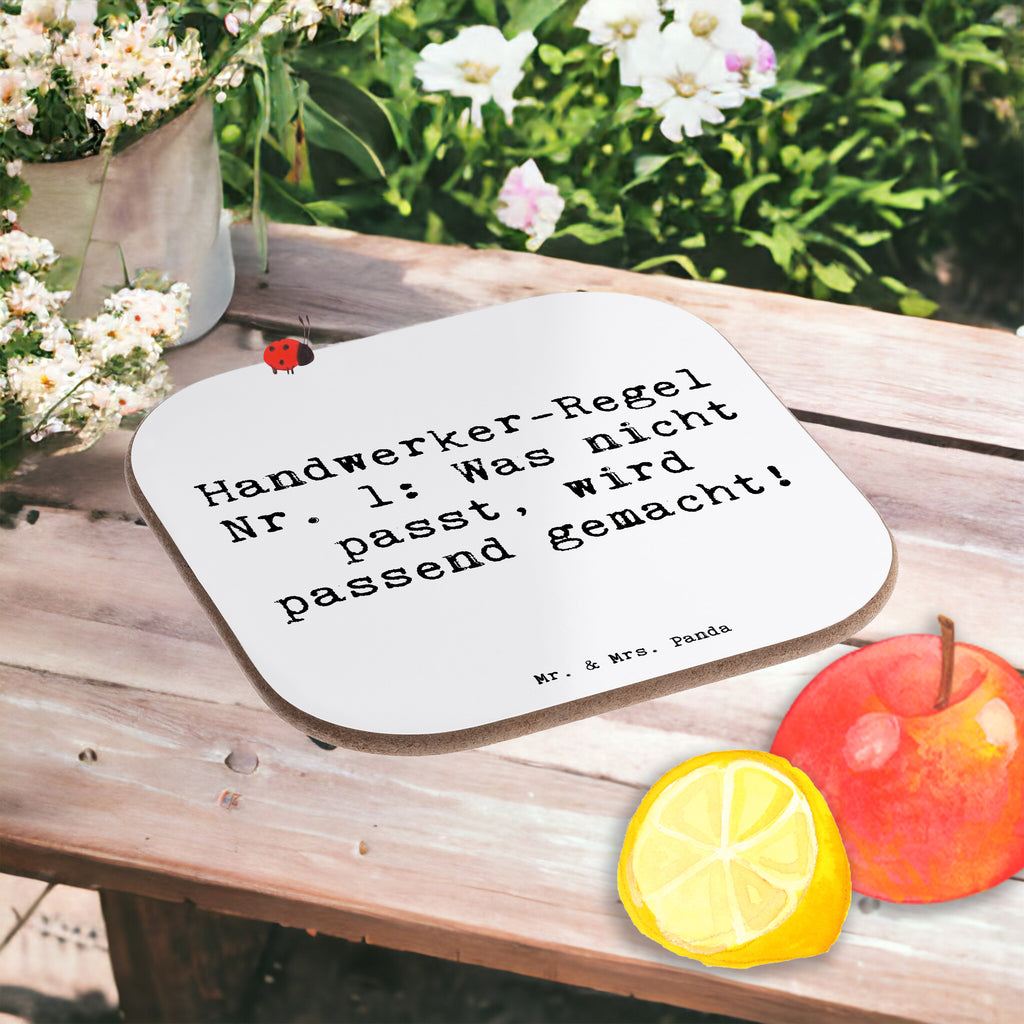 Handwerker-Regel
Nr. 1: Was nicht
passt, wird
passend gemacht!
Mr. & Mrs. Panda